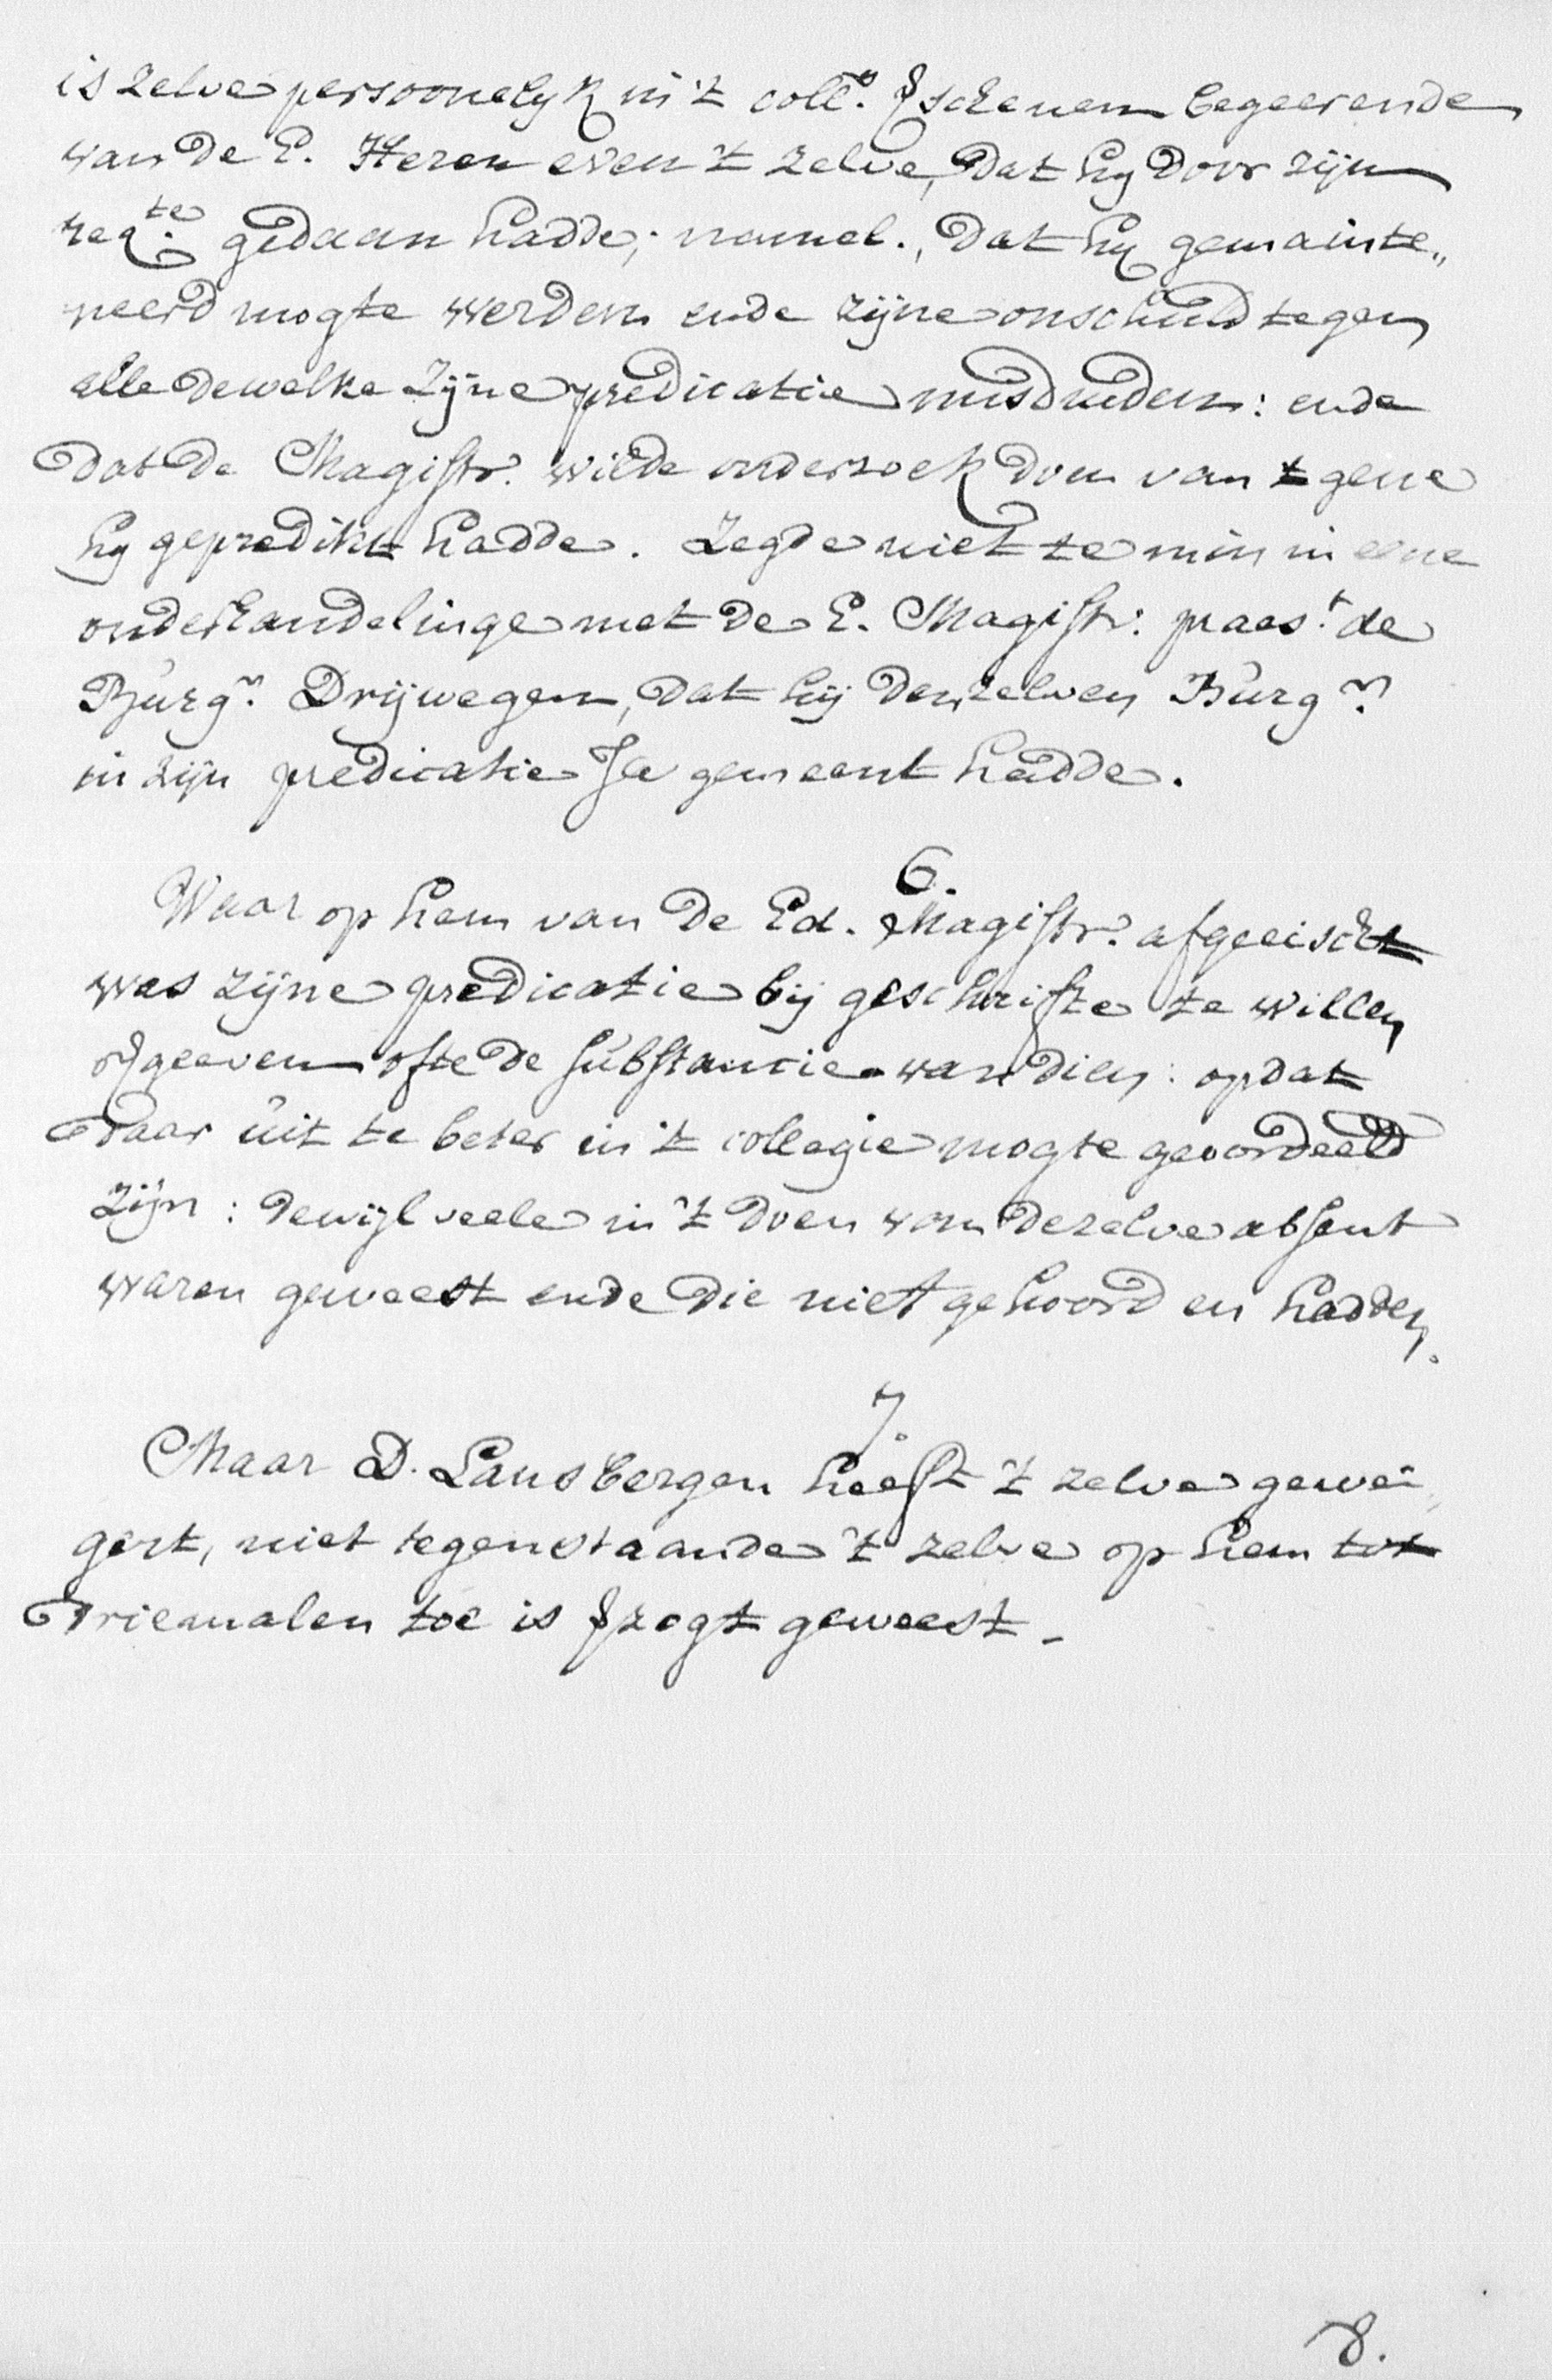 is zelve persoonelyk in 't coll.^e verschenen begeerende
van de E. Heren even 't zelve, dat hy door zijn
req^te. gedaan hadde; namel., dat hy gemainte„
neerd mogte werden ende zijne onschuld tegen
alle dewelke zijne predicatie misduiden: ende
dat de Magistr. wilde ondersoek doen van 't gene
hy gepredikt hadde. Zegde niet te min in eene
onderhandelinge met de E. Magistr: praes.^t de
Burg^r. Drijwegen, dat hij denzelven Burg^r.
in zijn predicatie Ja gemeent hadde.
6.
Waar op hem van de Ed. Magistr. afgeeischt
was zijne predicatie bij geschrifte te willen
overgeeven ofte de substancie van dien: opdat
daar uit te beter in 't collegie mogte geoordeeld
zijn: dewijl veele in 't doen van dezelve absent
waren geweest ende die niet gehoord en hadden.
7.
Maar D. Lansbergen heeft 't zelve gewei
gert, niet tegenstaande 't zelve op hem tot
driemalen toe is verzogt geweest.
8.